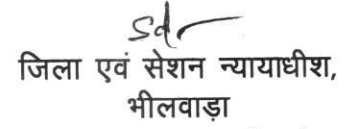 Sd/-
जिला एवं सेशन न्यायाधीश,
भीलवाड़ा